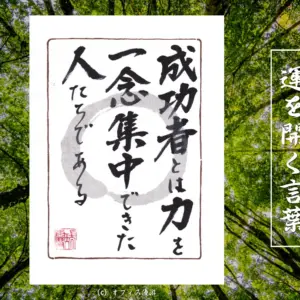 成功者とは力を
一念集中できた
人たちである
運を開く言葉
(c) オフィス湊川